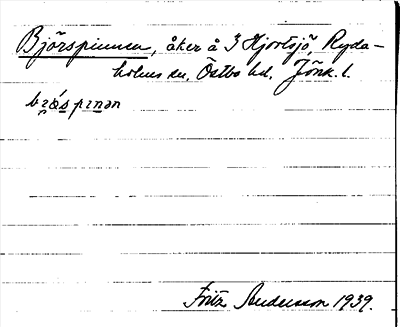 Björspinnen, åker å 3 Hjortsjö, Ryda-
holms sn, Östbo hd, Jönk. l.
Fritz Andersson 1939.